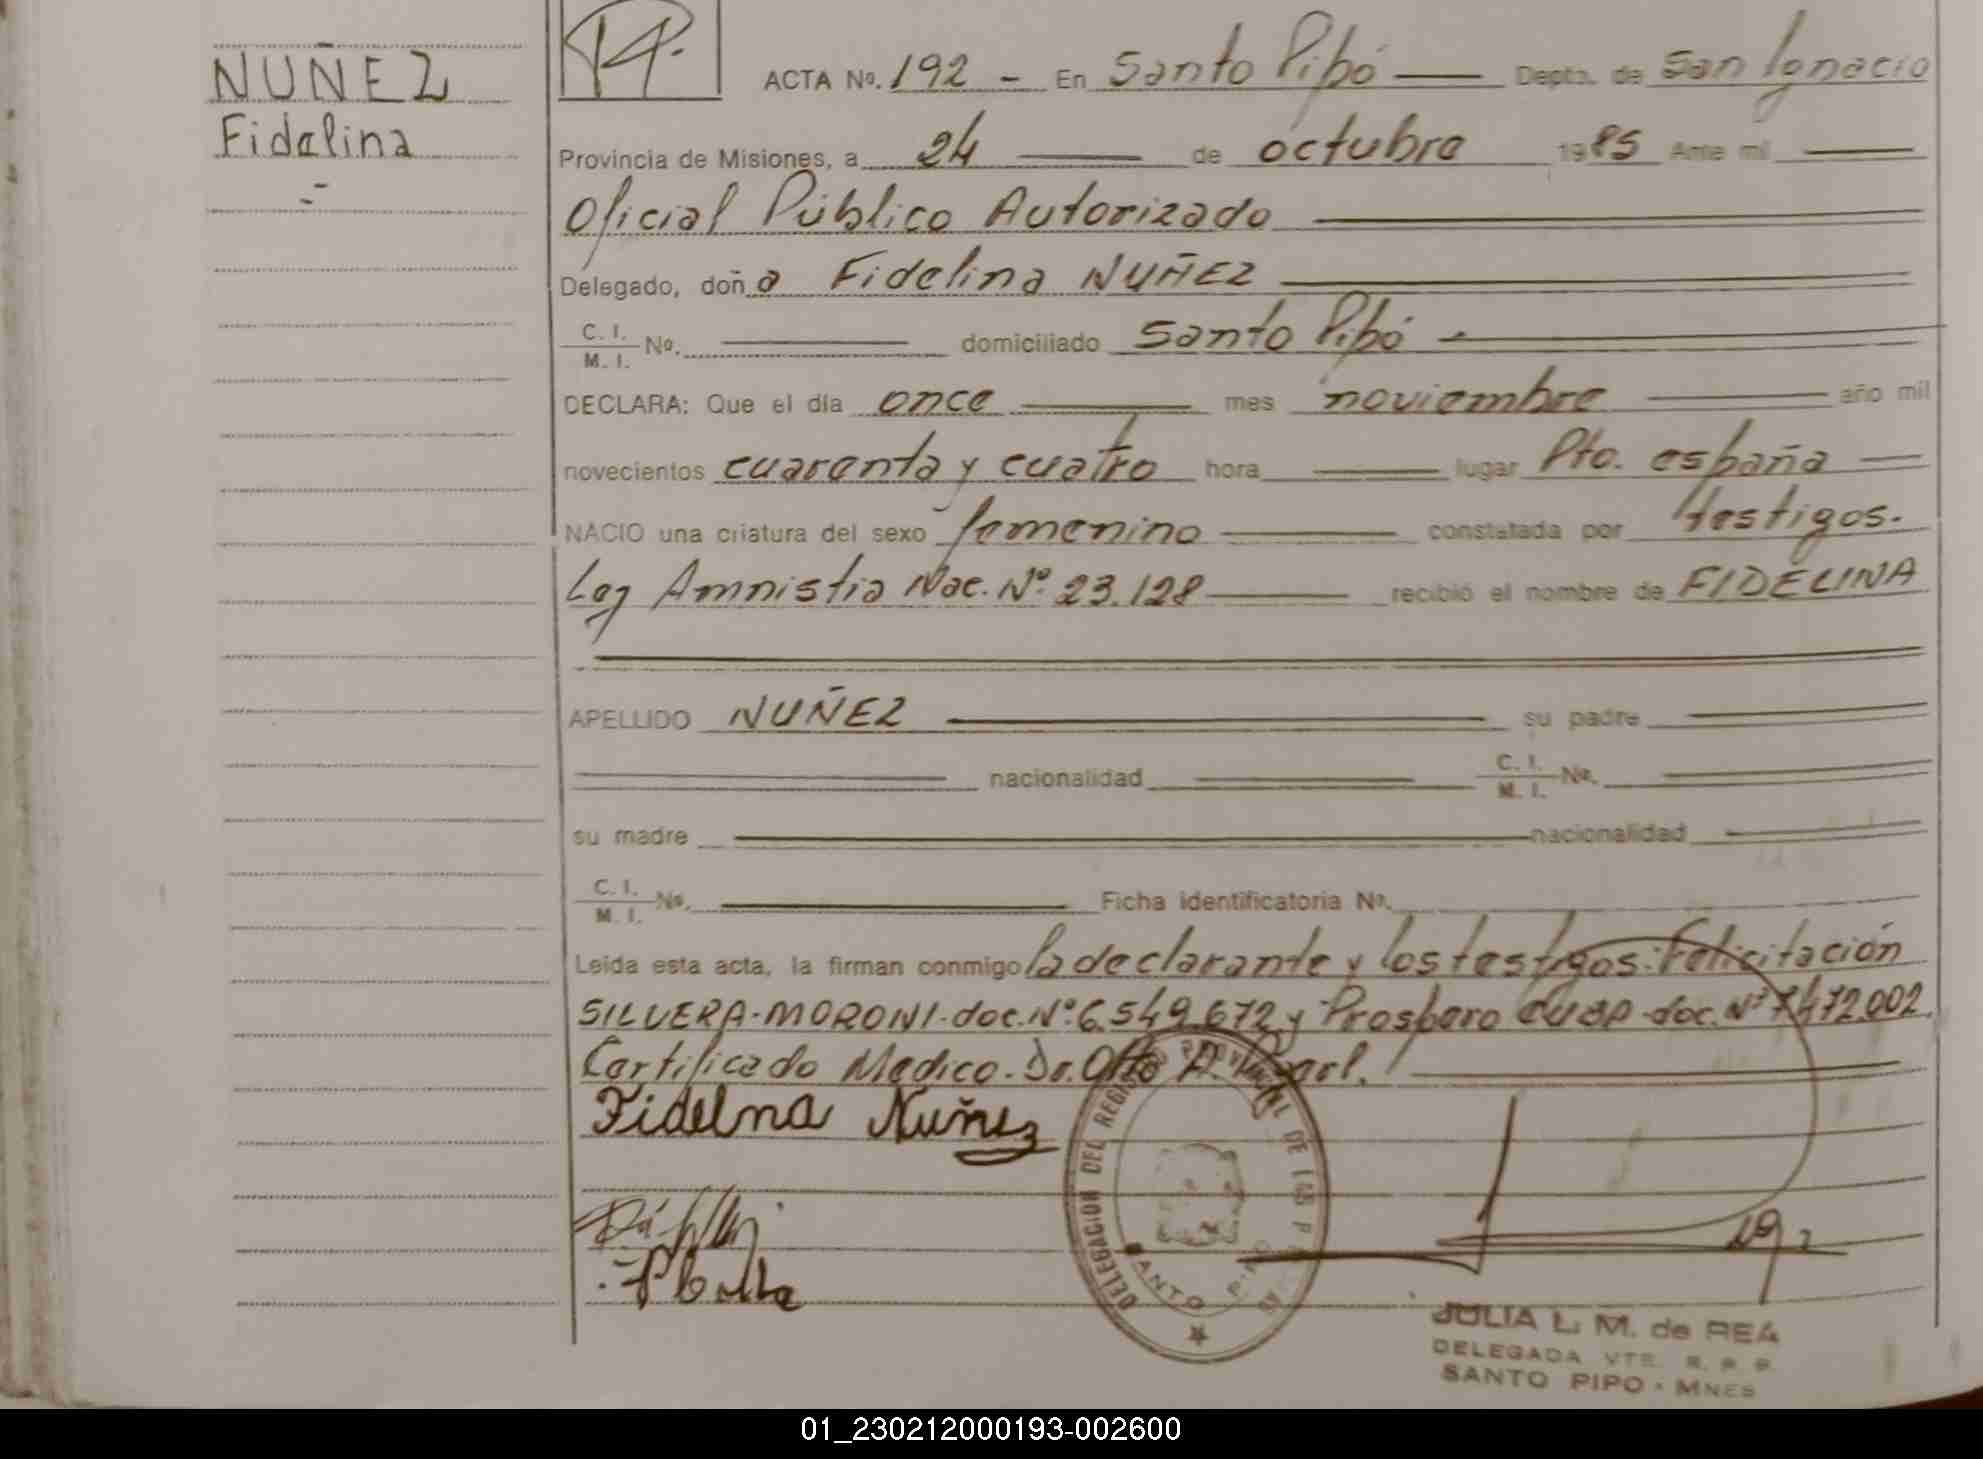 NUÑEZ
Fidelina
ACTA Nº. 192 - En Santo Pipó Depto. de San Ignacio
Provincia de Misiones, a 24 de octubre 1985 Ante mi
Oficial Público Autorizado
Delegado, doña Fidelina NUÑEZ
C. I.
M. I. Nº. domiciliado Santo Pipó -
DECLARA: Que el día once mes noviembre año mil
novecientos cuarenta y cuatro hora lugar Pto. españa
NACIO una criatura del sexo femenino constatada por testigos.
Ley Amnistia Nac. Nº 23.128 recibió el nombre de FIDELINA
APELLIDO NUÑEZ su padre
nacionalidad C. I.
M. I. Nº.
su madre nacionalidad
C. I.
M. I. Nº. Ficha identificatoria Nº.
Leída esta acta, la firman conmigo la declarante y los testigos: Felicitación
SILVERA-MORONI-doc. Nº 6.549.672 y Prospero doc. Nº 7.472.002
Certificado Medico. Dr. Otto A.
Fidelna Nuñez
DELEGACION DEL REGISTRO PROVINCIAL DE LAS P
SANTO PIPO
JULIA L. M. de REA
DELEGADA VTE. R. P. P.
SANTO PIPO - MNES
01_230212000193-002600